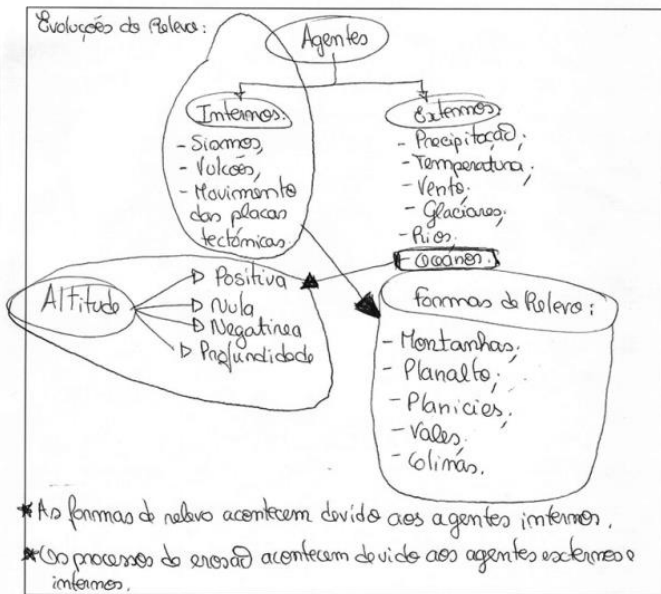 Evoluções do Relevo:
Agentes
Internos:
- Sismos,
- Vulcoẽs,
- Movimento
das placas
tectónicas.
Externos:
- Precipitação;
- Temperatura;
- Vento;
- Glaciares;
- Rios.
- Oceanos.
Altitude
Positiva
Nula
Negatinea
Profundidade
Formas de Relevo:
- Montanhas;
- Planalto;
- Planicies;
- Vales;
- Colinas.
* As formas de relevo acontecem devido aos agentes internos.
* Os processos de erosão acontecem devido aos agentes externos e
internos.